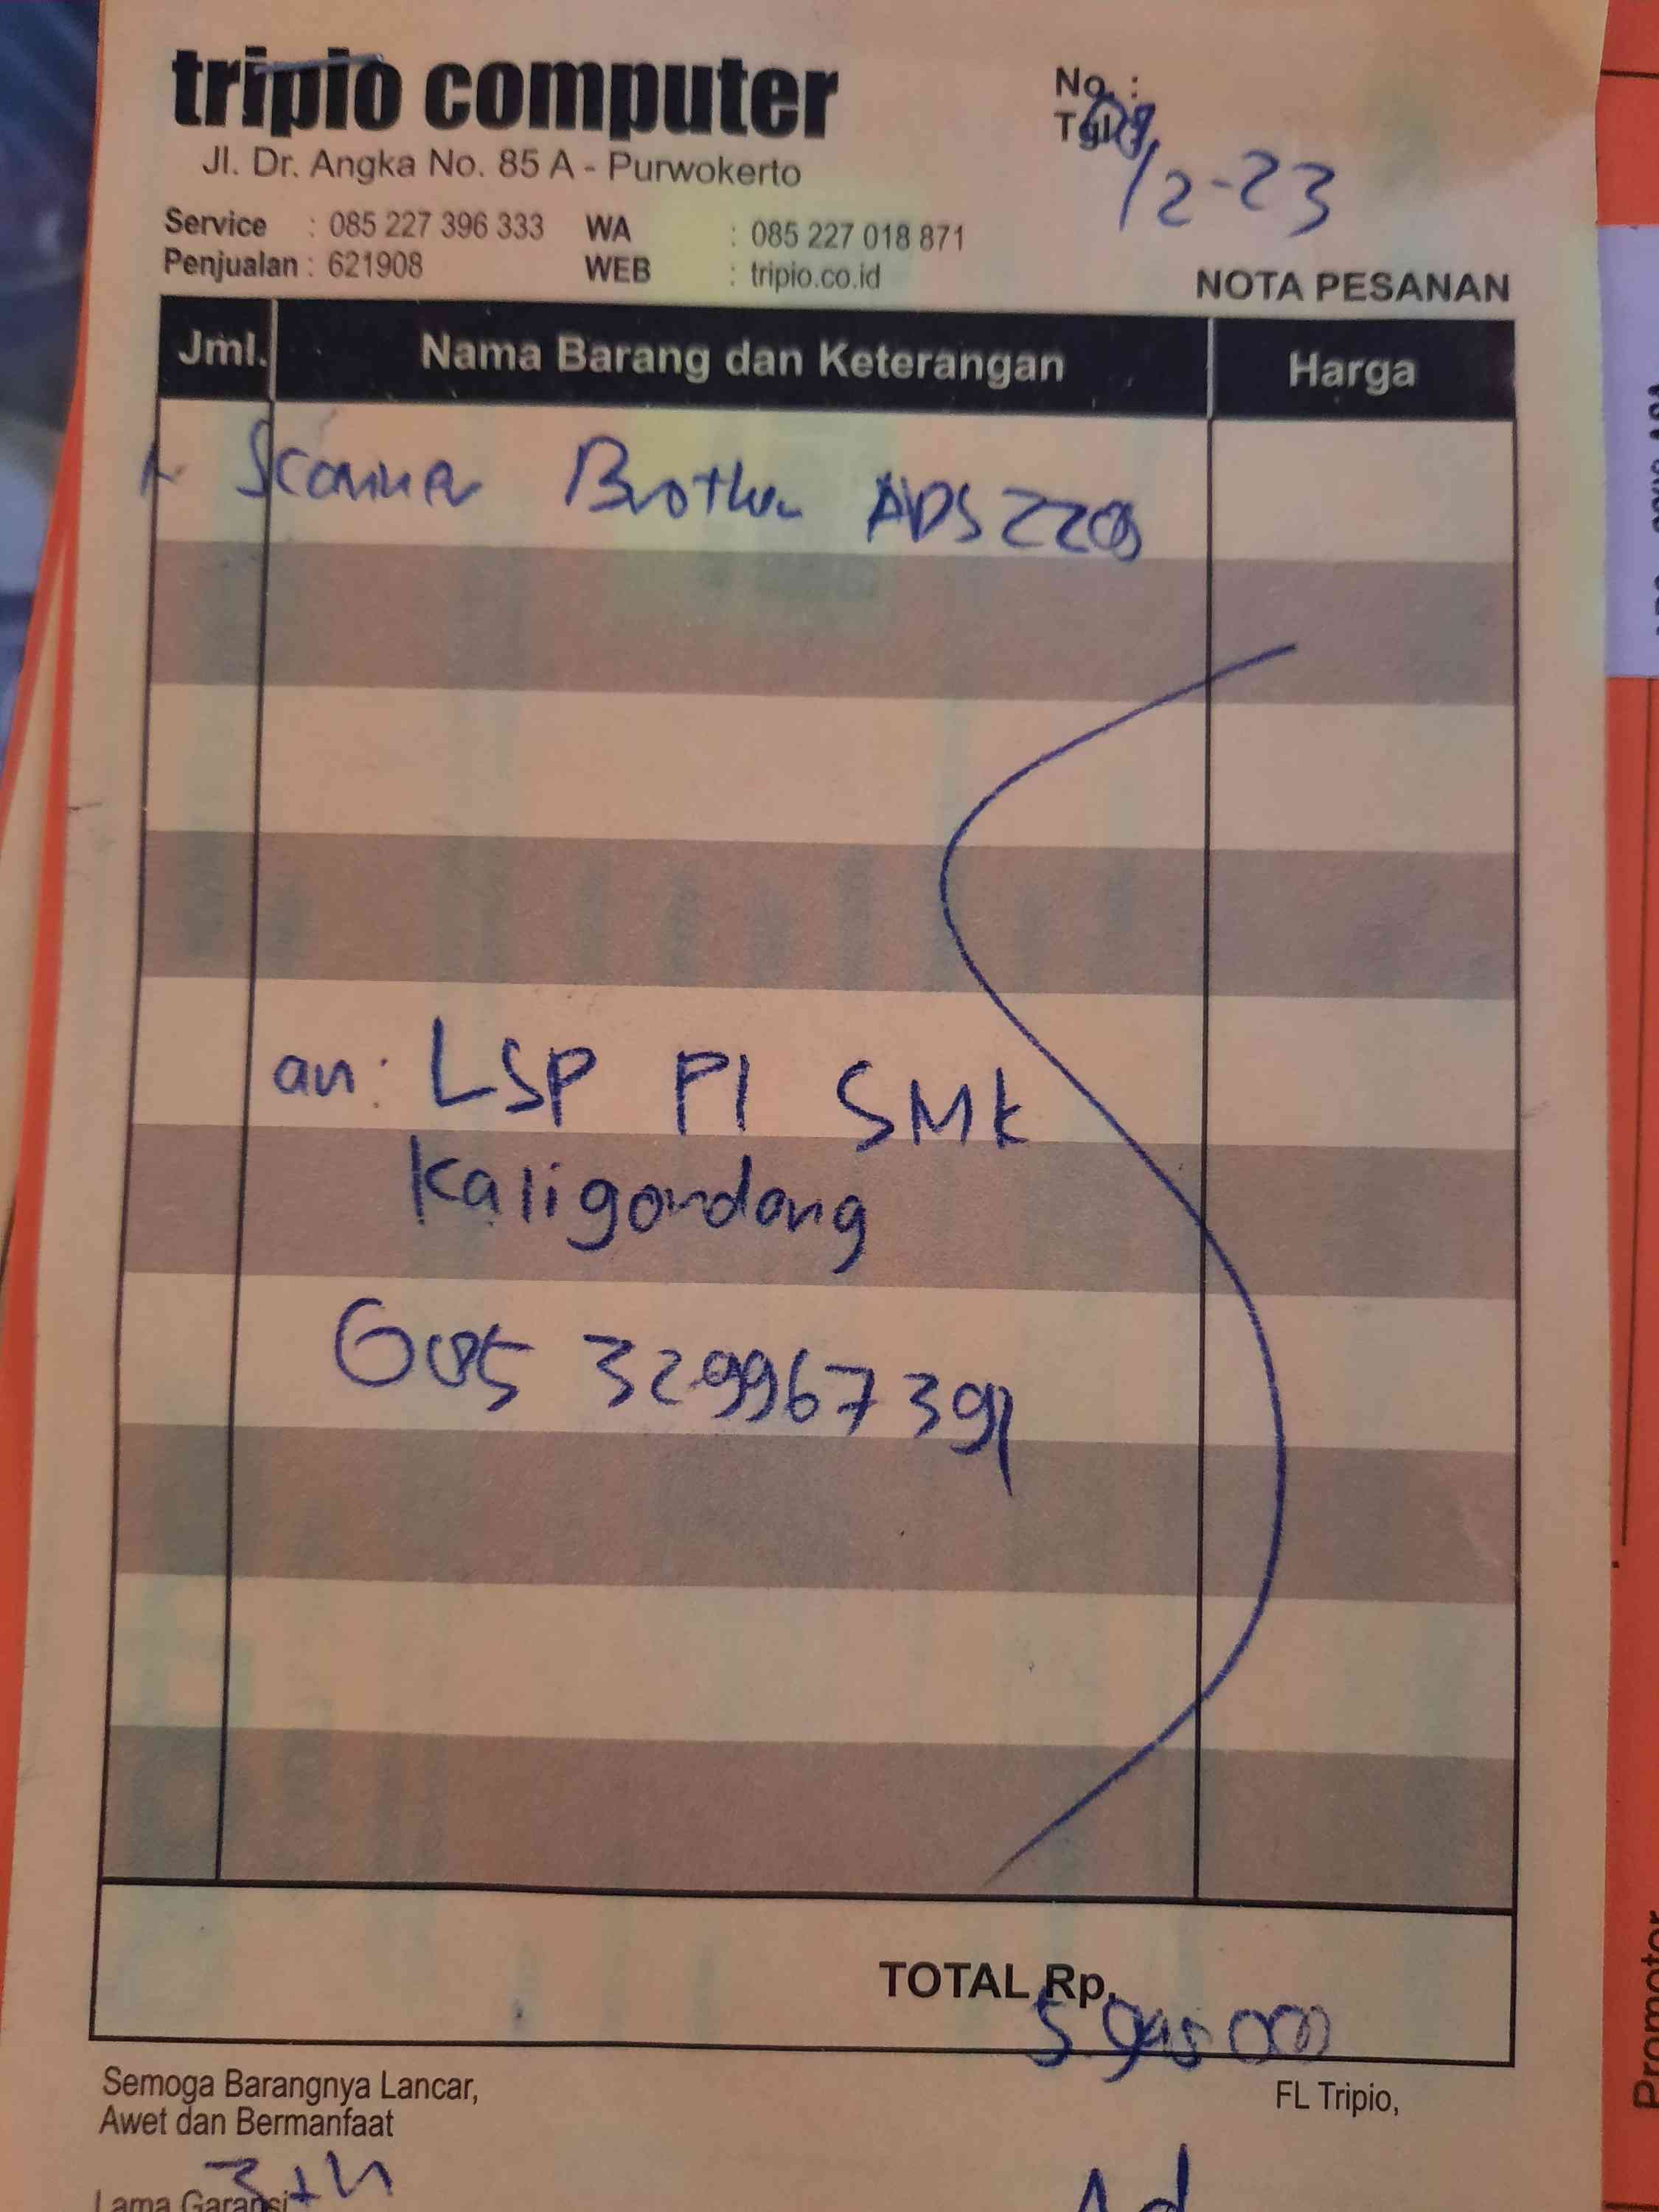 tripio computer
Jl. Dr. Angka No. 85 A - Purwokerto
No. :
Tgl.
/2-23
Service : 085 227 396 333 WA : 085 227 018 871
Penjualan : 621908 WEB : tripio.co.id
NOTA PESANAN
Jml. Nama Barang dan Keterangan Harga
Scanner Brother ADS 2200
an: LSP P1 SMK
Kaligondang
085 32996739
TOTAL Rp.
5.945.000
Semoga Barangnya Lancar,
Awet dan Bermanfaat
FL Tripio,
3 th
Lama Garansi
Promotor